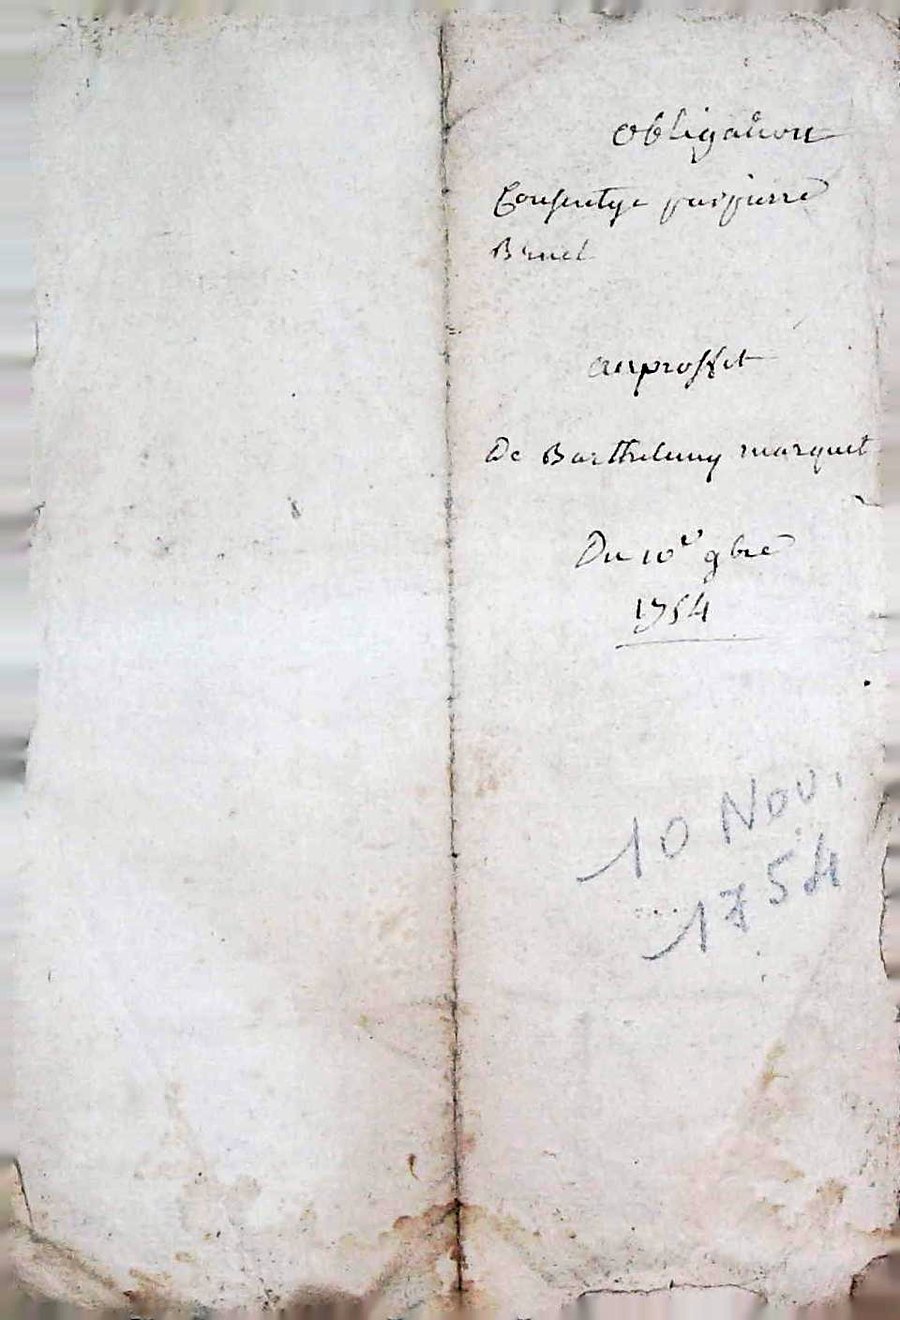 obligation
Consentye par pierre
Bruel
au proffit
De Barthelemy marquet
Du 10e 9bre
1754
10 Nov.
1754